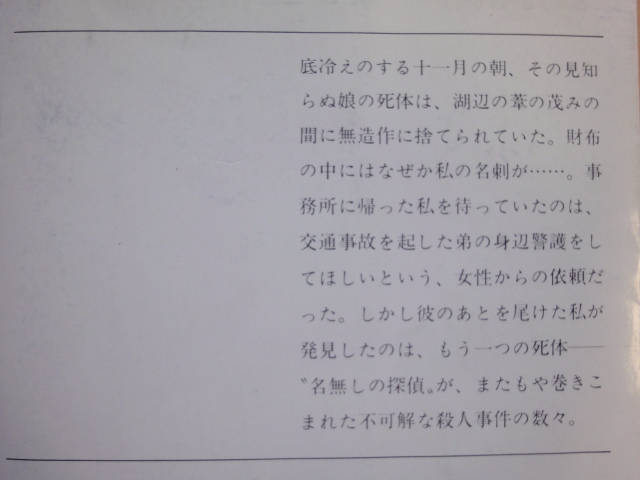 底冷えのする十一月の朝、その見知
らぬ娘の死体は、湖辺の葦の茂みの
間に無造作に捨てられていた。財布
の中にはなぜか私の名刺が……。事
務所に帰った私を待っていたのは、
交通事故を起した弟の身辺警護をし
てほしいという、女性からの依頼だ
った。しかし彼のあとを尾けた私が
発見したのは、もう一つの死体──
〝名無しの探偵〟が、またもや巻きこ
まれた不可解な殺人事件の数々。